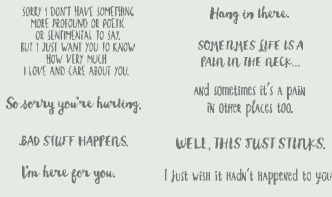 SORRY I DON'T HAVE SOMETHING
MORE PROFOUND OR POETIC
OR SENTIMENTAL TO SAY.
BUT I JUST WANT YOU TO KNOW
HOW VERY MUCH
I LOVE AND CARE ABOUT YOU.
So sorry you're hurting.
BAD STUFF HAPPENS.
I'm here for you.
Hang in there.
SOMETIMES LIFE IS A
PAIN IN THE NECK...
and sometimes it's a pain
in other places too.
WELL, THIS JUST STINKS.
I just wish it hadn't happened to you